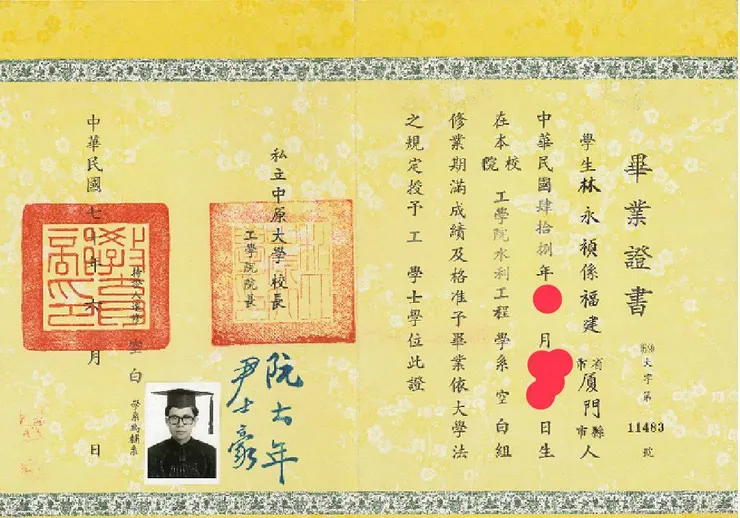 畢業證書
大字第11483號
學生林永禎係福建省市厦門縣市人
中華民國肆拾捌年月日生
在本校院工學院水利工程學系空白組
修業期滿成績及格准予畢業依大學法
之規定授予工學士學位此證
私立中原大學校長
工學院院長
阮大年
尹士豪
空白學系為輔系
中華民國七十年六月日